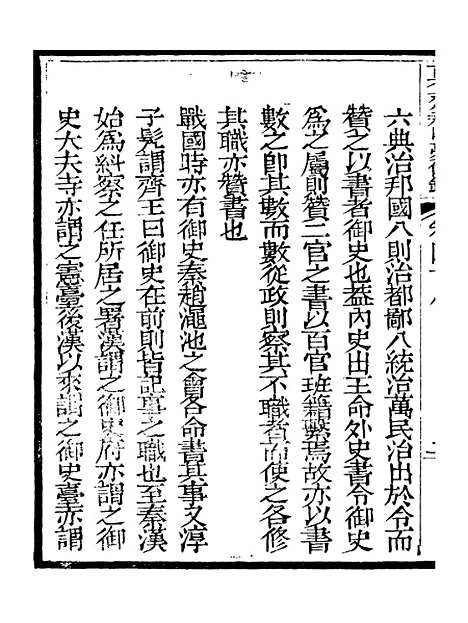 六典治邦國八則治都鄙八統治萬民治出於令而
贊之以書者御史也蓋內史出王命外史書令御史
爲之屬則贊二官之書以百官班籍繫焉故亦以書
數之卽其數而數從政則察其不職者而使之各修
其職亦贊書也
戰國時亦有御史秦趙澠池之會各命書其事又淳
子髡謂齊王曰御史在前則皆記事之職也至秦漢
始爲糾察之任所居之署漢謂之御史府亦謂之御
史大夫寺亦謂之憲臺後漢以來謂之御史臺亦謂